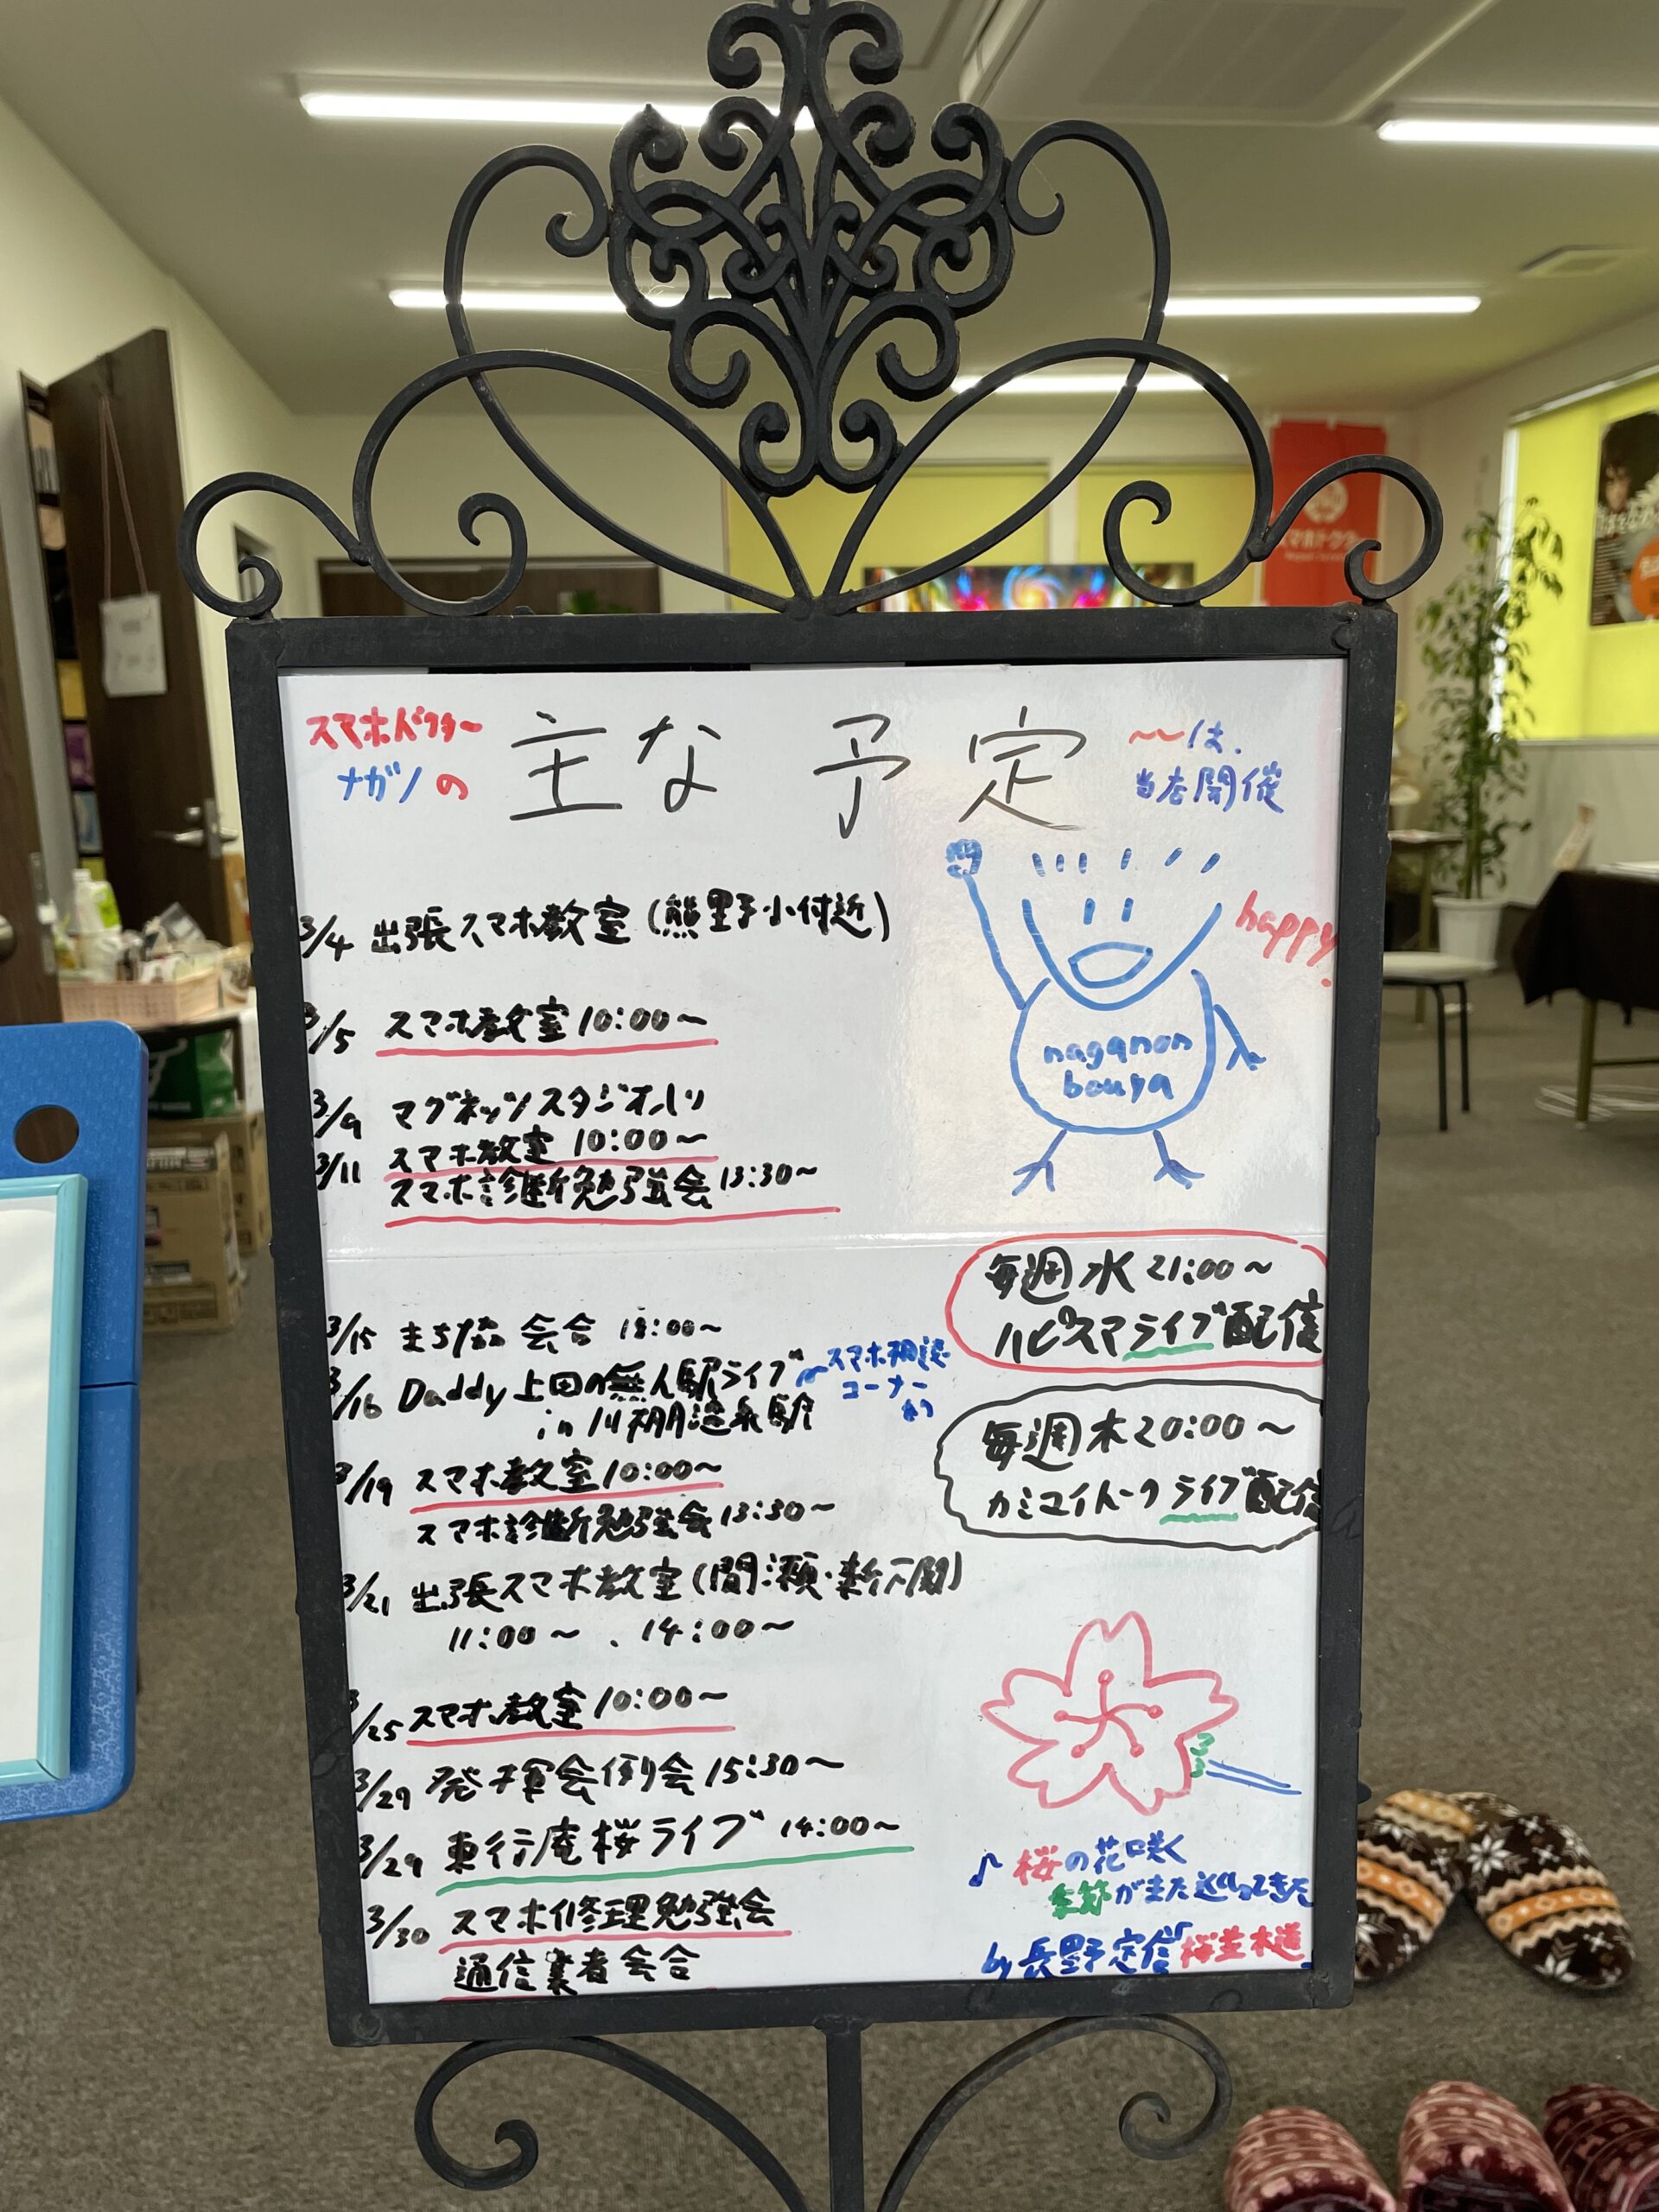 スマホドクター
ナガノの
主な予定
〜〜は、
当店開催
3/4 出張スマホ教室(熊野小付近)
3/5 スマホ教室 10:00〜
3/9 マグネッツスタジオ入り
3/11 スマホ教室 10:00〜
スマホ診断勉強会 13:30〜
happy!
naganon
bouya
毎週水 21:00〜
ハピスマライブ配信
毎週木 20:00〜
カミコイトークライブ配信
3/15 まち協 会合 18:00〜
3/16 Daddy上田の無人駅ライブ
in 川棚温泉駅
スマホ相談
コーナー
有り
3/19 スマホ教室 10:00〜
スマホ診断勉強会 13:30〜
3/21 出張スマホ教室(間瀬・新下関)
11:00〜、14:00〜
3/25 スマホ教室 10:00〜
3/29 発揮会例会 15:30〜
3/29 東行庵桜ライブ 14:00〜
3/30 スマホ修理勉強会
通信業者会合
♪桜の花咲く
季節がまた巡ってきた
by 長野定信「桜並木道」